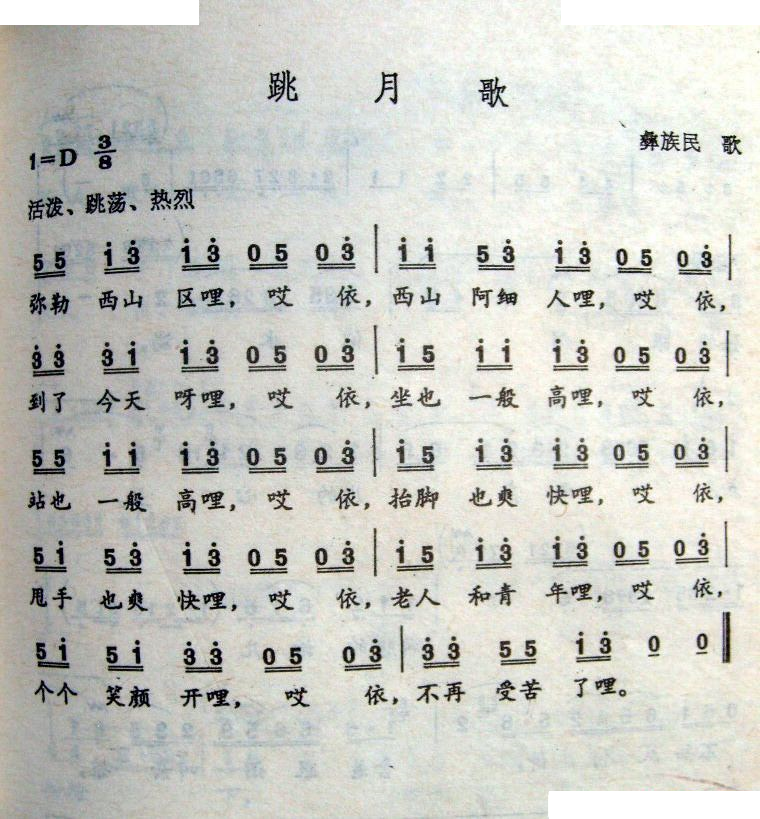 跳 月 歌
彝族民 歌
1=D 3/8
活泼、跳荡、热烈
5 5 i 3̇ i 3̇ 0 5 0 3̇ | i i 5 3̇ i 3̇ 0 5 0 3̇ |
弥勒 西山 区哩， 哎 依， 西山 阿细 人哩， 哎 依，
3̇ 3̇ 3̇ i i 3̇ 0 5 0 3̇ | i 5 i i i 3̇ 0 5 0 3̇ |
到了 今天 呀哩， 哎 依， 坐也 一般 高哩， 哎 依，
5 5 i i i 3̇ 0 5 0 3̇ | i 5 i 3̇ i 3̇ 0 5 0 3̇ |
站也 一般 高哩， 哎 依， 抬脚 也爽 快哩， 哎 依，
5 i 5 3̇ i 3̇ 0 5 0 3̇ | i 5 i 3̇ i 3̇ 0 5 0 3̇ |
甩手 也爽 快哩， 哎 依， 老人 和青 年哩， 哎 依，
5 i 5 i 3̇ 3̇ 0 5 0 3̇ | 3̇ 3̇ 5 5 i 3̇ 0 0
个个 笑颜 开哩， 哎 依， 不再 受苦 了哩。